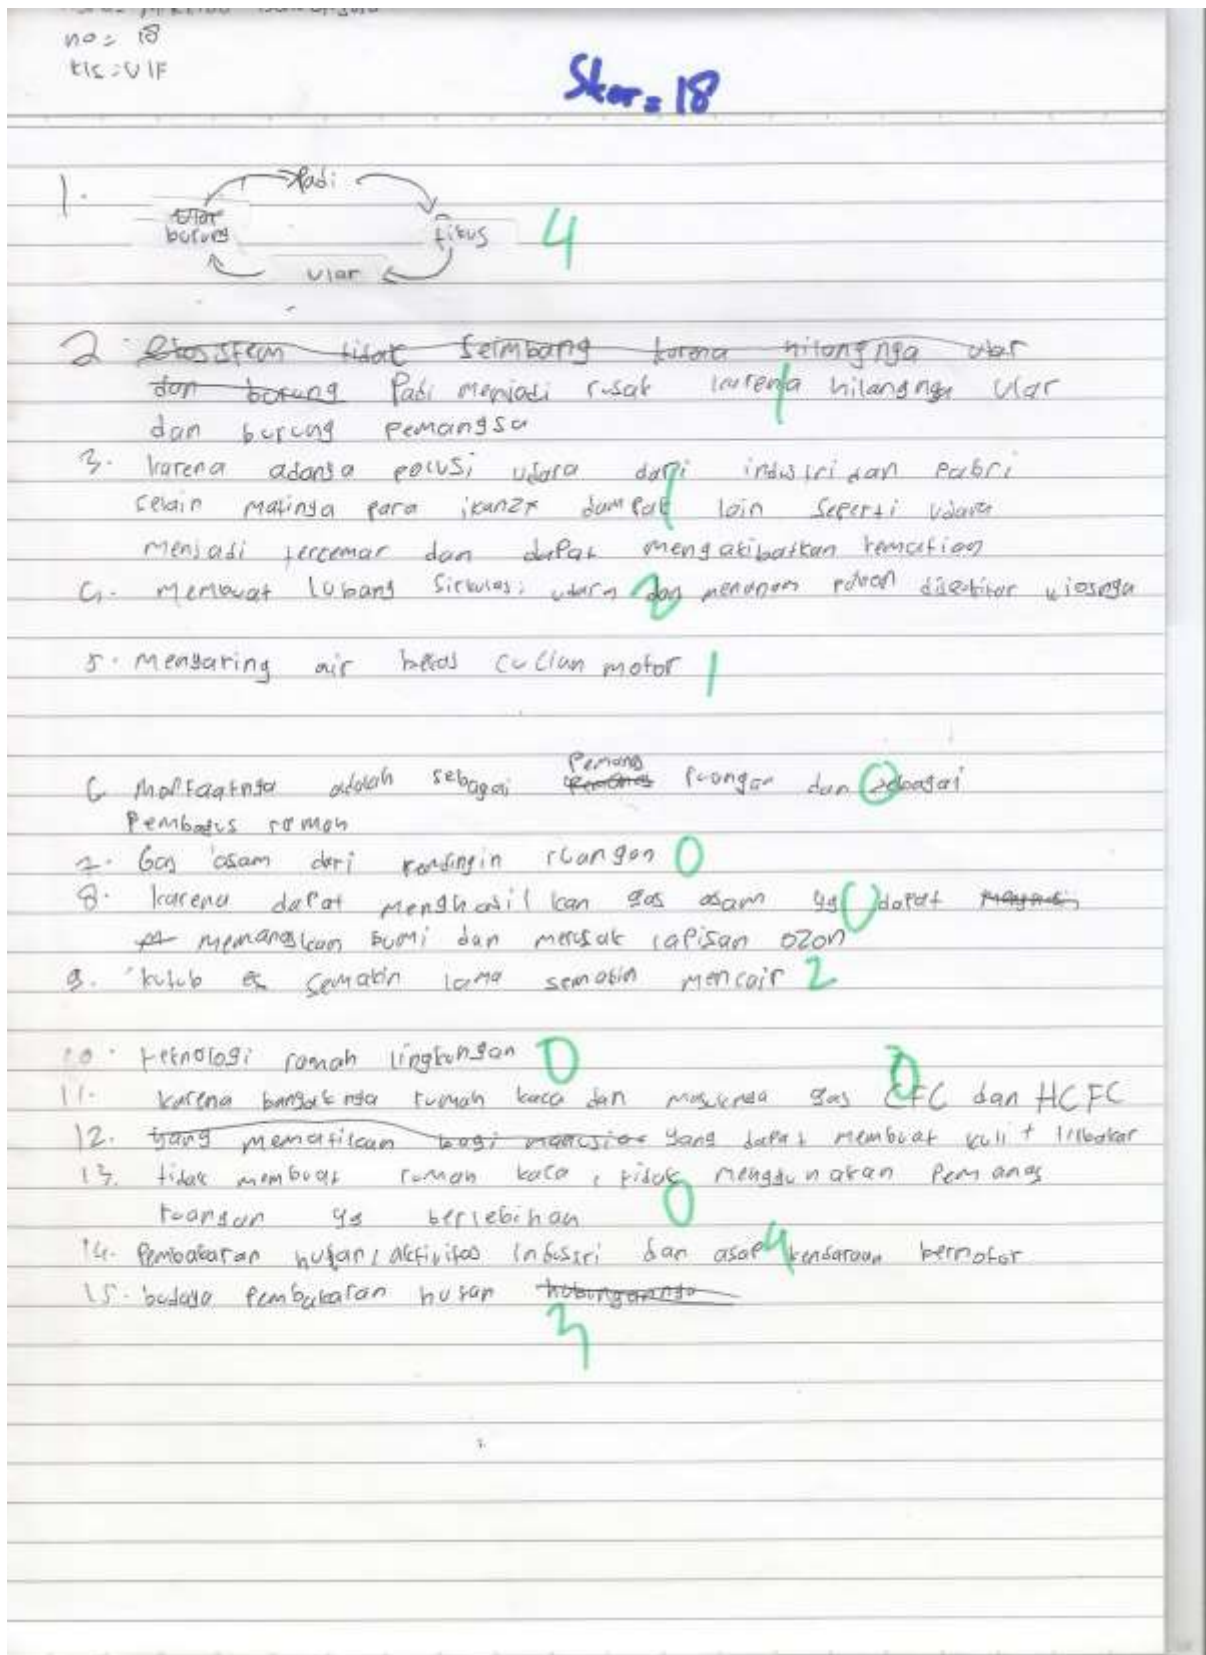 no = 18
kls = VIF
Skor = 18
1.
Padi
burung
tikus
4
ular
2 Ekosistem tidak seimbang karena hilangnga ular
dan burung Padi menjadi rusak karena hilangnga ular
1
dan burung pemangsa
3. karena adanga polusi udara dari industri dan Pabri
1
selain matinga para ikan2x dampak lain seperti udara
menjadi tercemar dan dapat mengakibatkan kematian
4. membuat lubang sirkulasi udara dan menanam pohon disekitar kiosnga
2
5. mengaring air bekas cucian motor 1
6 manfaatnga adalah sebagai Pemanas ruangan dan sebagai
0
Pembatas rumah
7. Gas asam dari pendingin ruangan 0
8. karena dapat menghasilkan gas asam yg dapat
0
memanaskan bumi dan merusak lapisan ozon
9. kutub es semakin lama semakin mencair 2
10. teknologi ramah lingkungan 0
11. karena bangaknga rumah kaca dan masuknga gas CFC dan HCFC
12. yang mematikan bagi manusia yang dapat membuat kulit terbakar
13. tidak membuat rumah kaca, tidak menggunakan Pemanas
ruangan yg berlebihan 0
14. Pembakaran hutan, aktivitas industri dan asap kendaraan bermotor
4
15. budaya Pembakaran hutan hubungannga
3